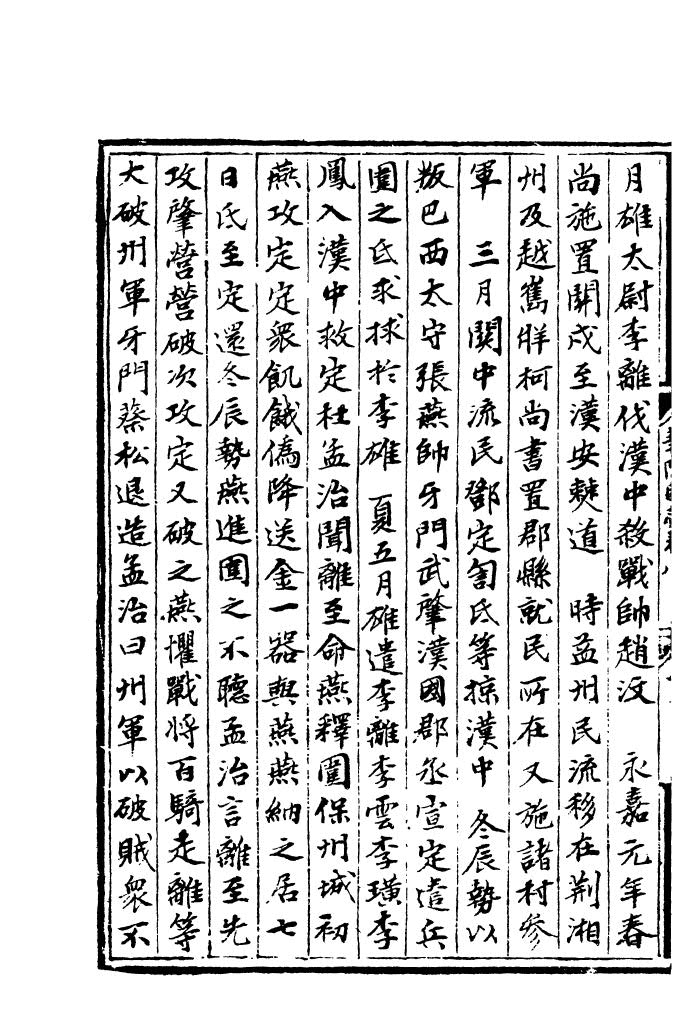 月雄太尉李離伐漢中殺戰帥趙汶　永嘉元年春
尚施置關戍至漢安僰道　時益州民流移在荆湘
州及越嶲牂柯尚書置郡縣就民所在又施諸村參
軍　三月関中流民鄧定訇氐等掠漢中　冬辰勢以
叛巴西太守張燕帥牙門武肇漢國郡丞宣定遣兵
圍之氐求捄於李雄　夏五月雄遣李離李雲李璜李
鳳入漢中救定杜孟治聞離至命燕釋圍保州城初
燕攻定定衆飢餓僞降送金一器與燕燕納之居七
日氐至定還冬辰勢燕進圍之不聽孟治言離至先
攻肇營營破次攻定又破之燕懼戰将百騎走離等
大破州軍牙門蔡松退造孟治曰州軍以破賊衆不